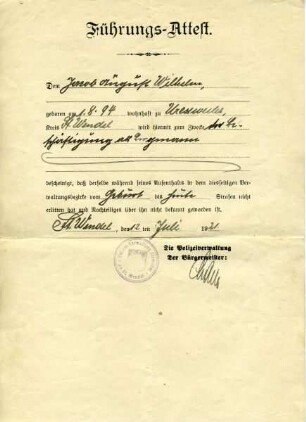 Führungs-Attest.
Dem Jacob August Wilhelm,
geboren am 1.8.94 wohnhaft zu Urexweiler,
Kreis St. Wendel wird hiermit zum Zwecke der Be-
schäftigung als Bergmann
bescheinigt, daß derselbe während seines Aufenthalts in dem diesseitigen Ver-
waltungsbezirke vom Geburt bis heute Strafen nicht
erlitten hat und Nachteiliges über ihn nicht bekannt geworden ist.
St. Wendel, den 12 ten Juli 19
Die Polizeiverwaltung
Der Bürgermeister: